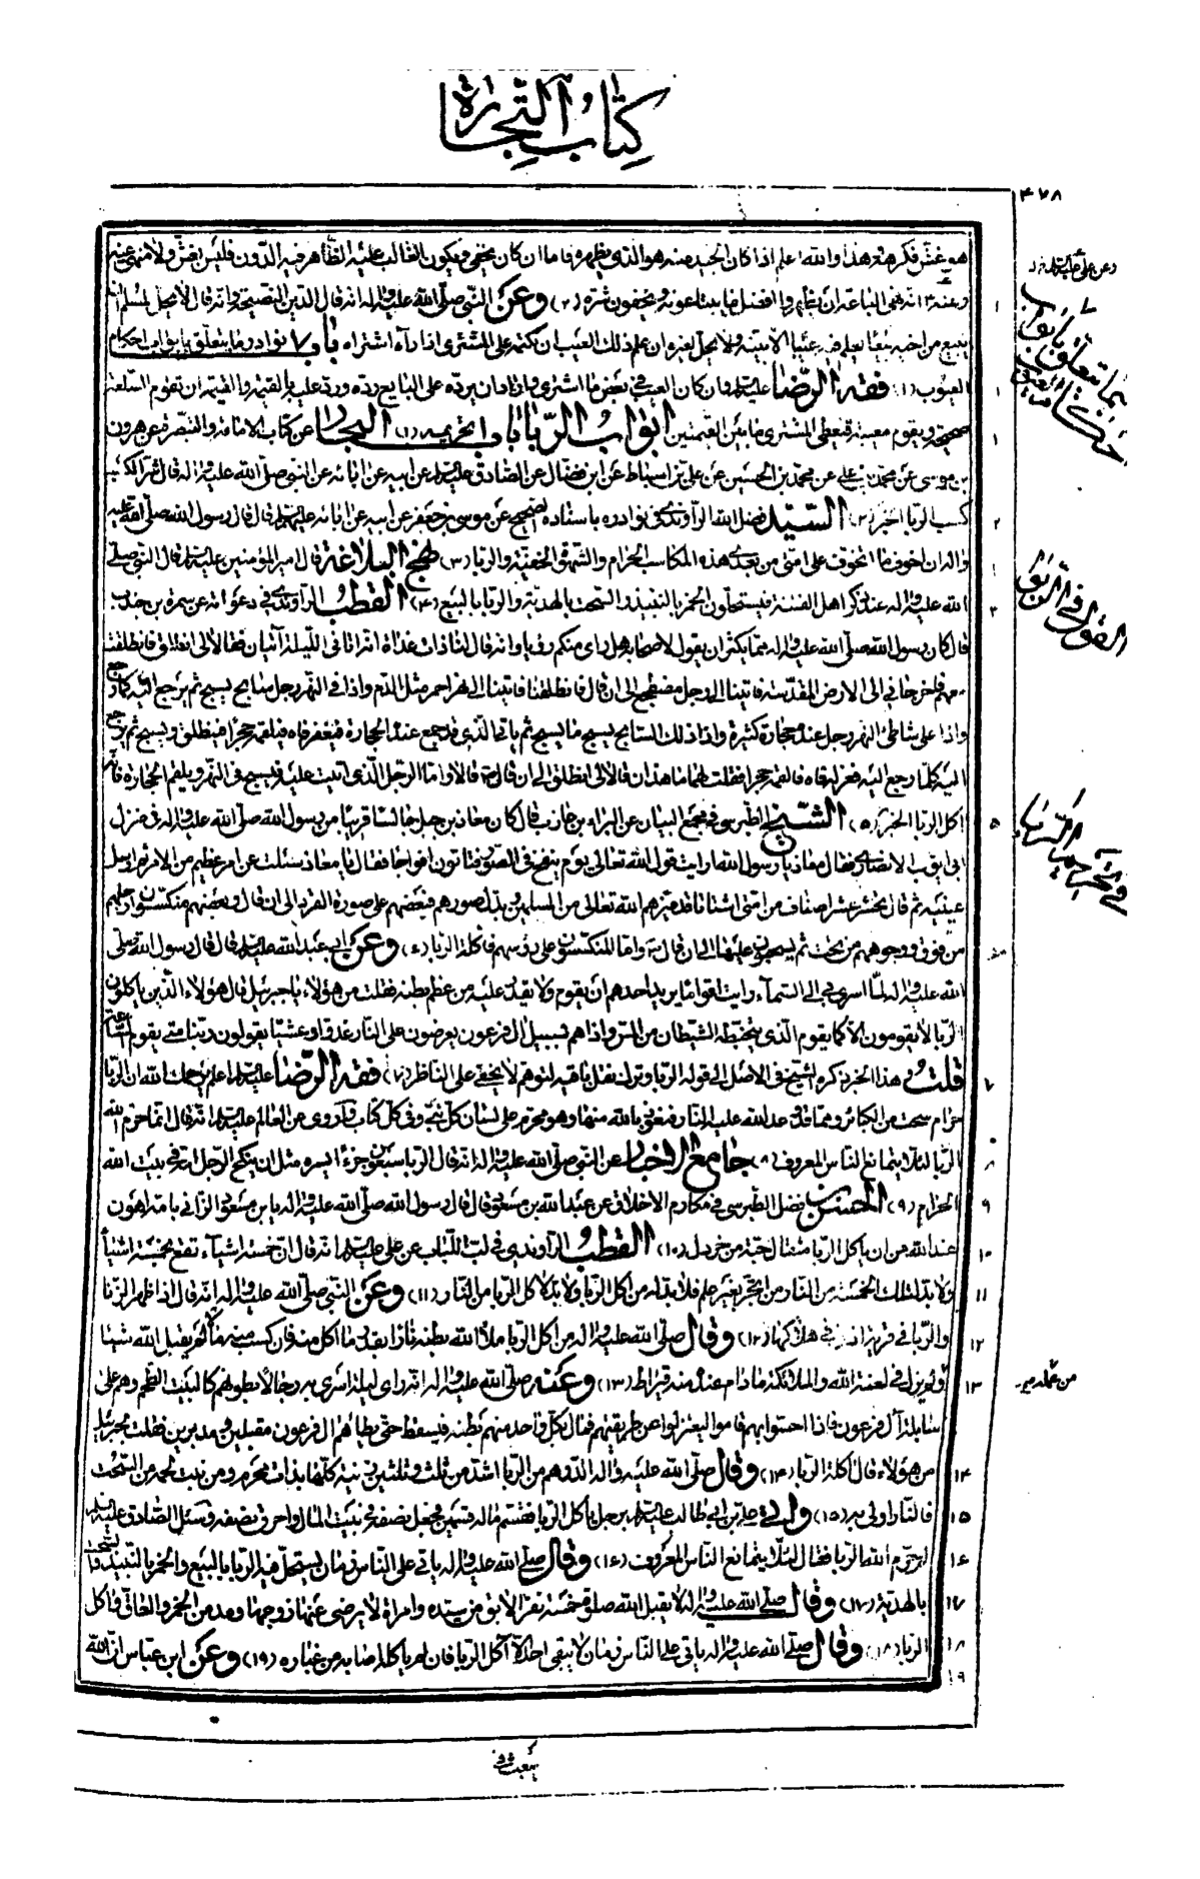 كتاب التجارة
۴۷۸
هو غش فكره هذا والله اعلم اذا كان الجيد منه هو الذى يظهر فاما ان كان يخفى ويكون الغالب عليه الظاهر فيه الدون فليس بغش ولا منهى عنه
النبى صلى الله عليه واله انه قال الدين النصيحة وانه قال لا يحل لمسلم ان
يبيع من اخيه بيعا يعلم فيه عيبا الا بينه ولا يحل لغيره ان علم ذلك العيب ان يكتمه على المشترى اذا رآه اشتراه باب ۷ نوادر ما يتعلق بابواب احكام
العيوب (۱) فقه الرضا عليه السلام وان كان العيب فى بعض ما اشترى واراد ان يرده على البايع رده ورد عليه بالقيمة والقيمة ان تقوم السلعة
صحيحة ويقوم معيبة فيعطى المشترى ما بين القيمتين ابواب الربا باب تحريمه (۱) البحار عن كتاب الامامة والتبصرة عن هرون
بن موسى عن محمد بن على عن محمد بن الحسين عن على بن اسباط عن ابن فضال عن الصادق عليه السلام عن ابيه عن ابائه عن النبى صلى الله عليه واله قال شر المكاسب
كسب الربا الخبر (۲) السيد فضل الله الراوندى فى نوادره باسناده الصحيح عن موسى بن جعفر عن ابيه عن ابائه عليهم السلام قال قال رسول الله صلى الله عليه
واله ان اخوف ما اتخوف على امتى من بعدى هذه المكاسب الحرام والشهوة الخفية والربا (۳) نهج البلاغة قال امير المؤمنين عليه السلام قال النبى صلى
الله عليه واله عند ذكر اهل الفتنة فيستحلون الخمر بالنبيذ والسحت بالهدية والربا بالبيع (۴) القطب الراوندى فى دعواته عن سمرة بن جندب
قال كان رسول الله صلى الله عليه واله مما يكثر ان يقول لاصحابه هل راى منكم رؤيا وانه قال لنا ذات غداة انه اتانى الليلة آتيان فقالا لى انطلق فانطلقت
معهما فاخرجانى الى الارض المقدسة فاتينا الى رجل مضطجع الى ان قال فانطلقنا فاتينا الى نهر احمر مثل الدم واذا فى النهر رجل سابح يسبح ثم يرجع اليه
واذا على شاطى النهر رجل عنده حجارة كثيرة واذا ذلك السابح يسبح ما يسبح ثم ياتى الذى قد جمع عنده الحجارة فيفغر فاه فيلقمه حجرا فينطلق ويسبح ثم يرجع
اليه كلما رجع اليه فغر له فاه فالقمه حجرا فقلت لهما ما هذان قالا لى انطلق الى ان قال قالا واما الرجل الذى اتيت عليه يسبح فى النهر ويلقم الحجارة فانه
اكل الربا الخبر (۵) الشيخ الطبرسى فى مجمع البيان عن البراء بن عازب قال كان معاذ بن جبل جالسا قريبا من رسول الله صلى الله عليه واله فى منزل
ابى ايوب الانصارى فقال معاذ يا رسول الله ارايت قول الله تعالى يوم ينفخ فى الصور فتاتون افواجا فقال يا معاذ سئلت عن امر عظيم من الامر ثم ارسل
عينيه ثم قال يحشر عشرة اصناف من امتى اشتاتا قد ميزهم الله تعالى من المسلمين وبدل صورهم فبعضهم على صورة القردة الى ان قال وبعضهم منكسون ارجلهم
من فوق ووجوههم من تحت ثم يسحبون عليها الى ان قال واما المنكسون على رؤسهم فاكلة الربا (۶) وعن ابى عبدالله عليه السلام قال قال رسول الله صلى
الله عليه واله لما اسرى بى الى السماء رايت اقواما يريد احدهم ان يقوم ولا يقدر عليه من عظم بطنه فقلت من هؤلاء يا جبرئيل قال هؤلاء الذين ياكلون
الربا لا يقومون الا كما يقوم الذى يتخبطه الشيطان من المس واذا هم بسبيل ال فرعون يعرضون على النار غدوا وعشيا يقولون ربنا متى يقوم الساعة
قلت وهذا الخبر ذكره الشيخ فى الاصل الى قوله الربا وترك نقل باقيه لتوهم لا يخفى على الناظر (۷) فقه الرضا عليه السلام اعلم يرحمك الله ان الربا
حرام سحت من الكباير ومما قد وعد الله عليه النار فنعوذ بالله منها وهو محرم على لسان كل نبى وفى كل كتاب وقد اروى عن العالم عليه السلام انه قال انما حرم الله
الربا لئلا يتمانع الناس المعروف (۸) جامع الاخبار عن النبى صلى الله عليه واله انه قال الربا سبعون جزءا ايسره مثل ان ينكح الرجل امه فى بيت الله
الحرام (۹) الحسن بن فضل الطبرسى فى مكارم الاخلاق عن عبدالله بن مسعود قال قال رسول الله صلى الله عليه واله يا بن مسعود الزانى بامه اهون
عند الله من ان ياكل الربا مثقال حبة من خردل (۱۰) القطب الراوندى فى لب اللباب عن على عليه السلام انه قال ان خمسة اشياء تقع بخمسة اشياء
ولا بد لتلك الخمسة من النار من اتجر بغير علم فلا بد له من اكل الربا ولا بد لاكل الربا من النار (۱۱) وعن النبى صلى الله عليه واله انه قال اذا ظهر الزنا
والربا فى قرية اذن فى هلاكها (۱۲) وقال صلى الله عليه واله من اكل الربا ملأ الله بطنه نارا بقدر ما اكل منه فان كسب منه مالا لم يقبل الله شيئا
ولم يزل فى لعنة الله والملائكة ما دام عنده منه قيراط (۱۳) وعنه صلى الله عليه واله انه راى ليلة اسرى به رجالا بطونهم كالبيت الطخم وهم على
سابلة ال فرعون فاذا احسوا بهم قاموا ليعتزلوا عن طريقهم فمال بكل واحد منهم بطنه فيسقط حتى يطاهم ال فرعون مقبلين ومدبرين فقلت لجبرئيل
من هؤلاء قال اكلة الربا (۱۴) وقال صلى الله عليه واله الدرهم من الربا اشد من ثلث وثلثين زنية كلها بذات محرم ومن نبت لحمه من السحت
فالنار اولى به (۱۵) على بن ابى طالب عليه السلام برجل ياكل الربا فقسم ماله قسمين فجعل نصفه فى بيت المال واحرق نصفه وسئل الصادق عليه السلام
لم حرم الله الربا فقال لئلا يتمانع الناس المعروف (۱۶) وقال صلى الله عليه واله ياتى على الناس زمان يستحل فيه الربا بالبيع والخمر بالنبيذ والسحت
بالهدية (۱۷) وقال صلى الله عليه واله لا يقبل الله صلوة خمسة نفر الابق من سيده وامراة لا يرضى عنها زوجها ومدمن الخمر والعاق واكل
الربا (۱۸) وقال صلى الله عليه واله ياتى على الناس زمان لا يبقى احد الا اكل الربا فان لم ياكله اصابه من غباره (۱۹) وعن ابن عباس ان الله